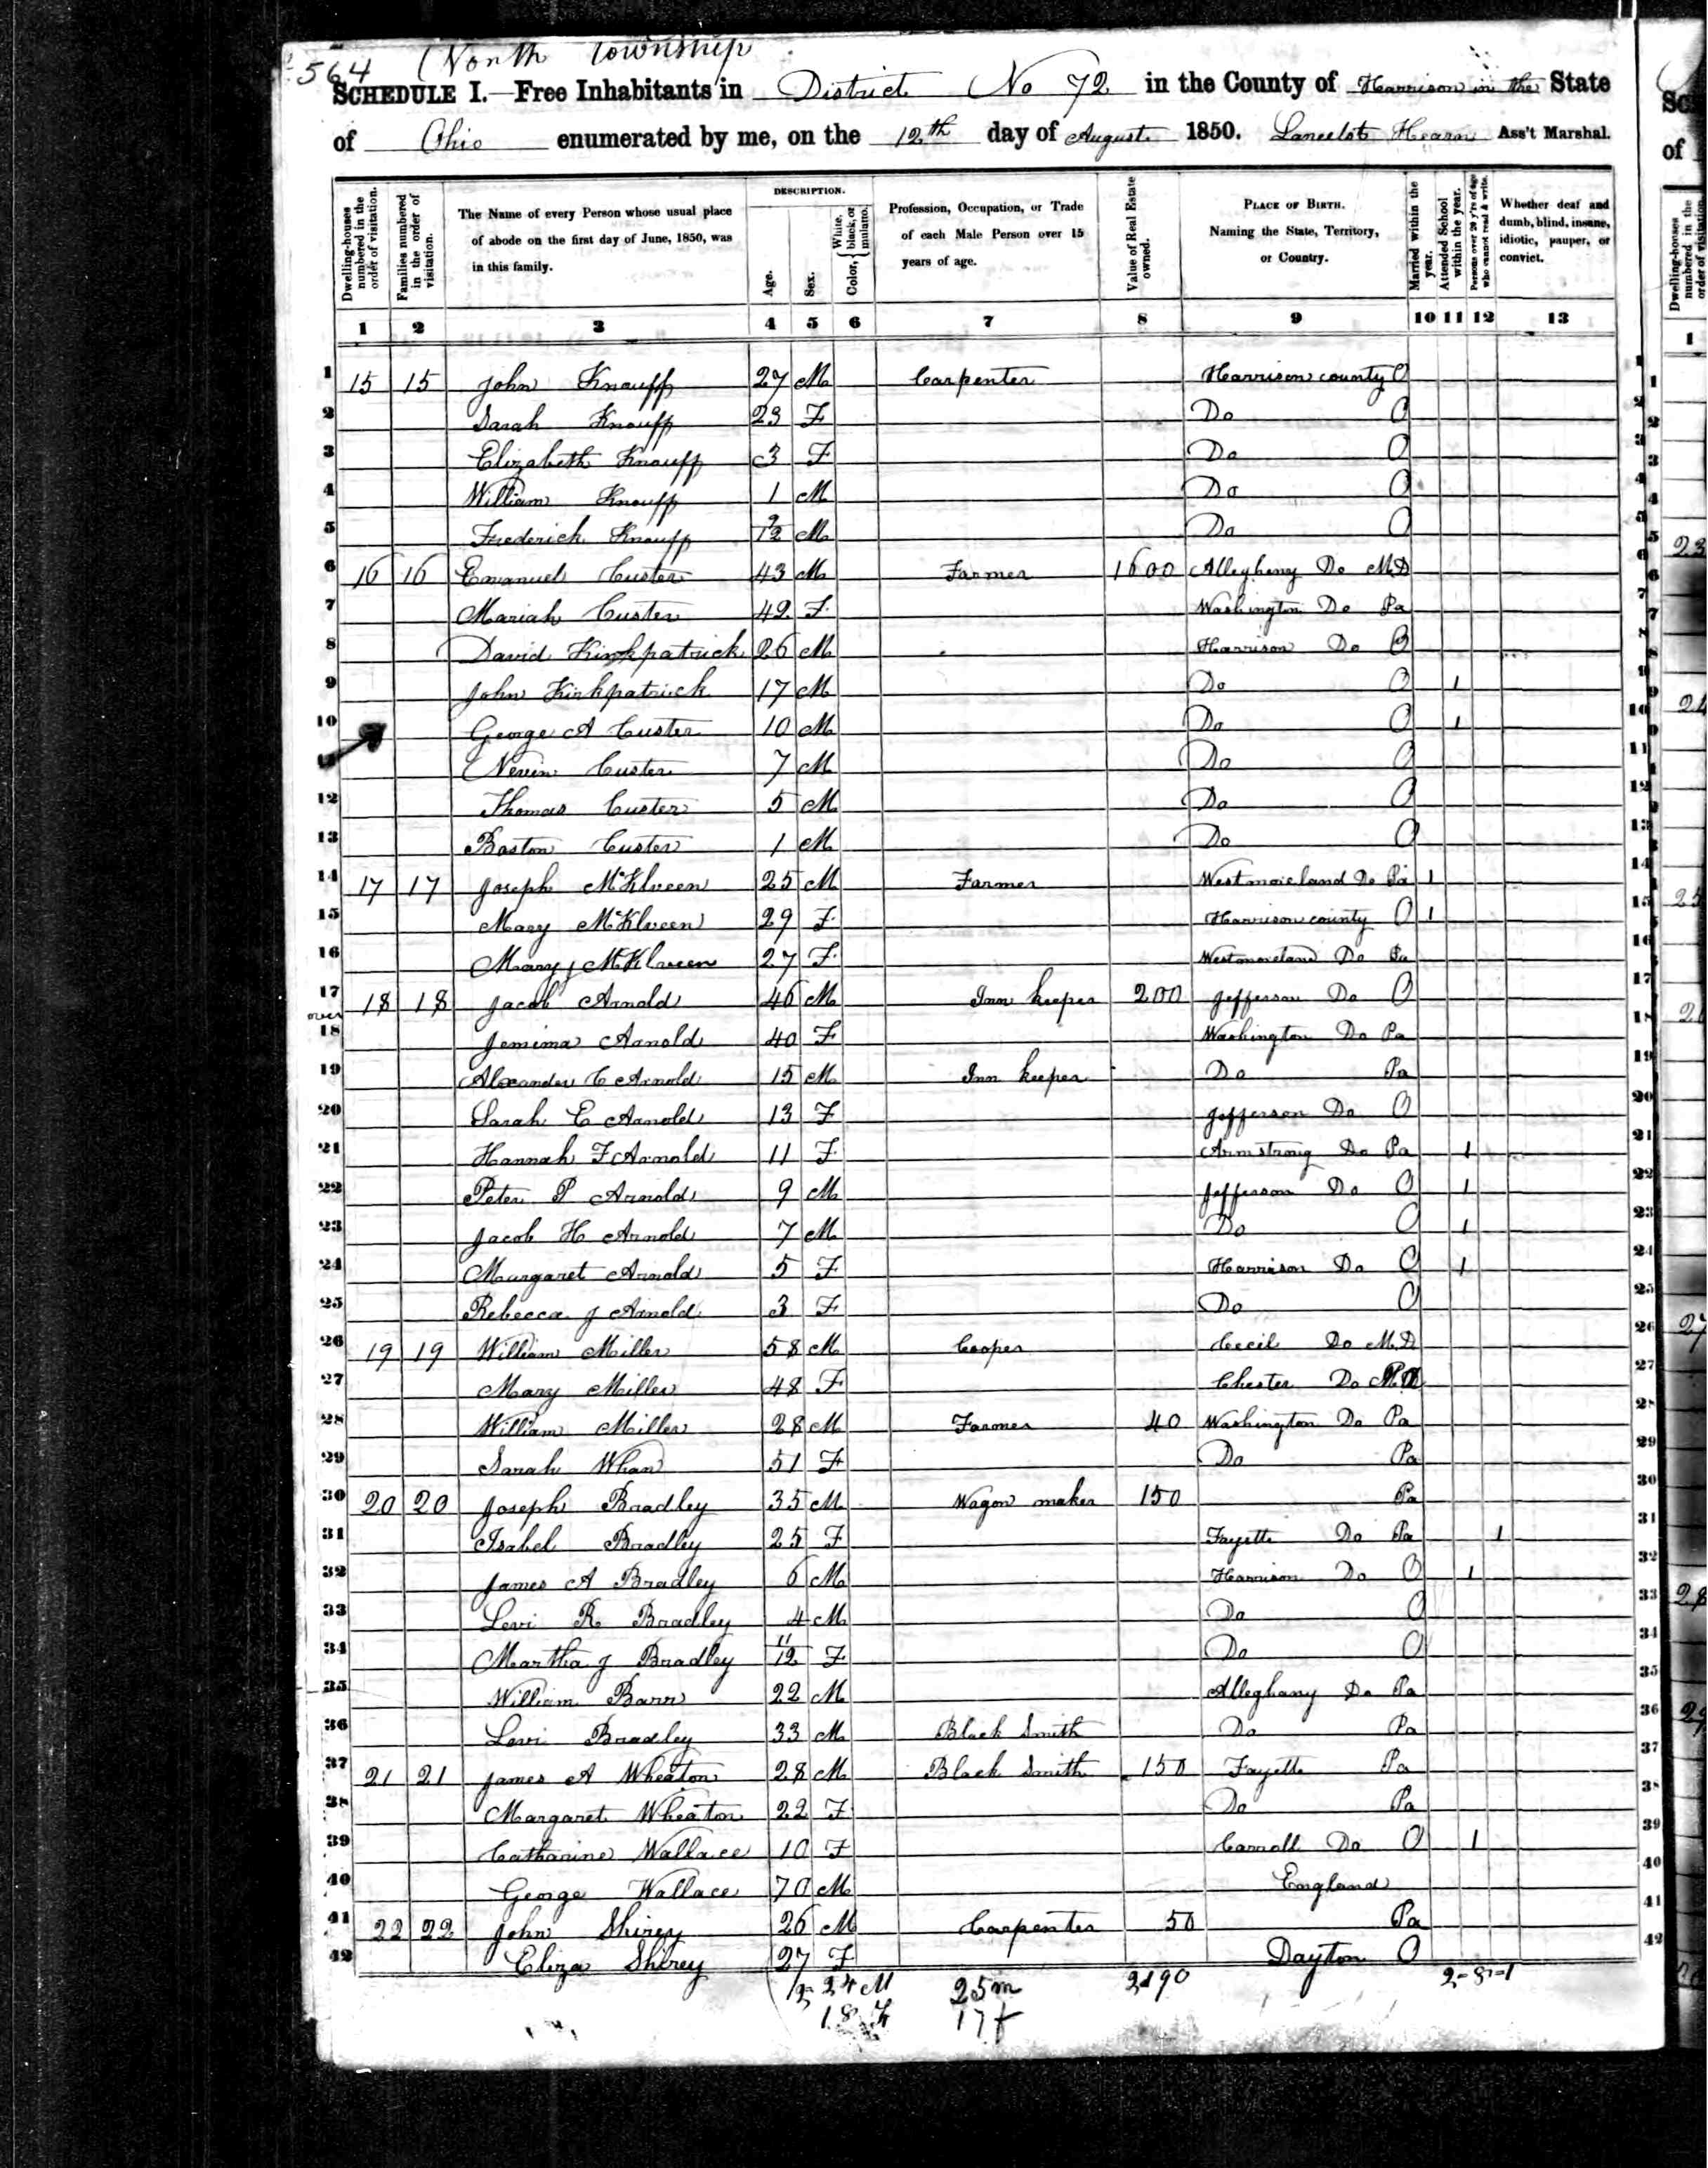 564 North Township
SCHEDULE I.—Free Inhabitants in District No 72 in the County of Harrison in the State
of Ohio enumerated by me, on the 12th day of August 1850. Lancelot Hearn Ass't Marshal.
Dwelling-houses numbered in the order of visitation.
Families numbered in the order of visitation.
The Name of every Person whose usual place of abode on the first day of June, 1850, was in this family.
DESCRIPTION.
Age.
Sex.
Color, { White, black, or mulatto.
Profession, Occupation, or Trade of each Male Person over 15 years of age.
Value of Real Estate owned.
PLACE OF BIRTH. Naming the State, Territory, or Country.
Married within the year.
Attended School within the year.
Persons over 20 y'rs of age who cannot read & write.
Whether deaf and dumb, blind, insane, idiotic, pauper, or convict.
1 2 3 4 5 6 7 8 9 10 11 12 13
1 15 15 John Knauff 27 M Carpenter Harrison county O 1
2 Sarah Knauff 23 F Do O 2
3 Elizabeth Knauff 3 F Do O 3
4 William Knauff 1 M Do O 4
5 Frederick Knauff 9/12 M Do O 5
6 16 16 Emanuel Custer 43 M Farmer 1600 Allegheny Do M.D 6
7 Mariah Custer 42 F Washington Do Pa 7
8 David Kirkpatrick 26 M Harrison Do O 8
9 John Kirkpatrick 17 M Do O 1 9
10 George A Custer 10 M Do O 1 10
Nevin Custer 7 M Do O 11
12 Thomas Custer 5 M Do O 12
13 Boston Custer 1 M Do O 13
14 17 17 Joseph McKlveen 25 M Farmer Westmoreland Do Pa 1 14
15 Mary McKlveen 29 F Harrison county O 1 15
16 Mary J McKlveen 27 F Westmoreland Do Pa 16
17 18 18 Jacob Arnold 46 M Inn keeper 200 Jefferson Do O 17
over
18 Jemima Arnold 40 F Washington Do Pa 18
19 Alexander C Arnold 15 M Inn keeper Do Pa 19
20 Sarah E Arnold 13 F Jefferson Do O 20
21 Hannah F Arnold 11 F Armstrong Do Pa 1 21
22 Peter P Arnold 9 M Jefferson Do O 1 22
23 Jacob H Arnold 7 M Do O 1 23
24 Margaret Arnold 5 F Harrison Do O 1 24
25 Rebecca J Arnold 3 F Do O 25
26 19 19 William Miller 58 M Cooper Cecil Do M.D 26
27 Mary Miller 48 F Chester Do 27
28 William Miller 28 M Farmer 40 Washington Do Pa 28
29 Sarah Whan 51 F Do Pa 29
30 20 20 Joseph Bradley 35 M Wagon maker 150 Pa 30
31 Isabel Bradley 25 F Fayette Do Pa 1 31
32 James A Bradley 6 M Harrison Do O 1 32
33 Levi R Bradley 4 M Do O 33
34 Martha J Bradley 11/12 F Do O 34
35 William Barr 22 M Alleghany Do Pa 35
36 Levi Bradley 33 M Black Smith Do Pa 36
37 21 21 James A Wheaton 28 M Black Smith 150 Fayette Pa 37
38 Margaret Wheaton 22 F Do Pa 38
39 Catharine Wallace 10 F Carroll Do O 1 39
40 George Wallace 70 M England 40
41 22 22 John Shirey 26 M Carpenter 50 Pa 41
42 Eliza Shirey 27 F Dayton O 42
24 M 25 m 2190 2-8-1
18 F 17 f